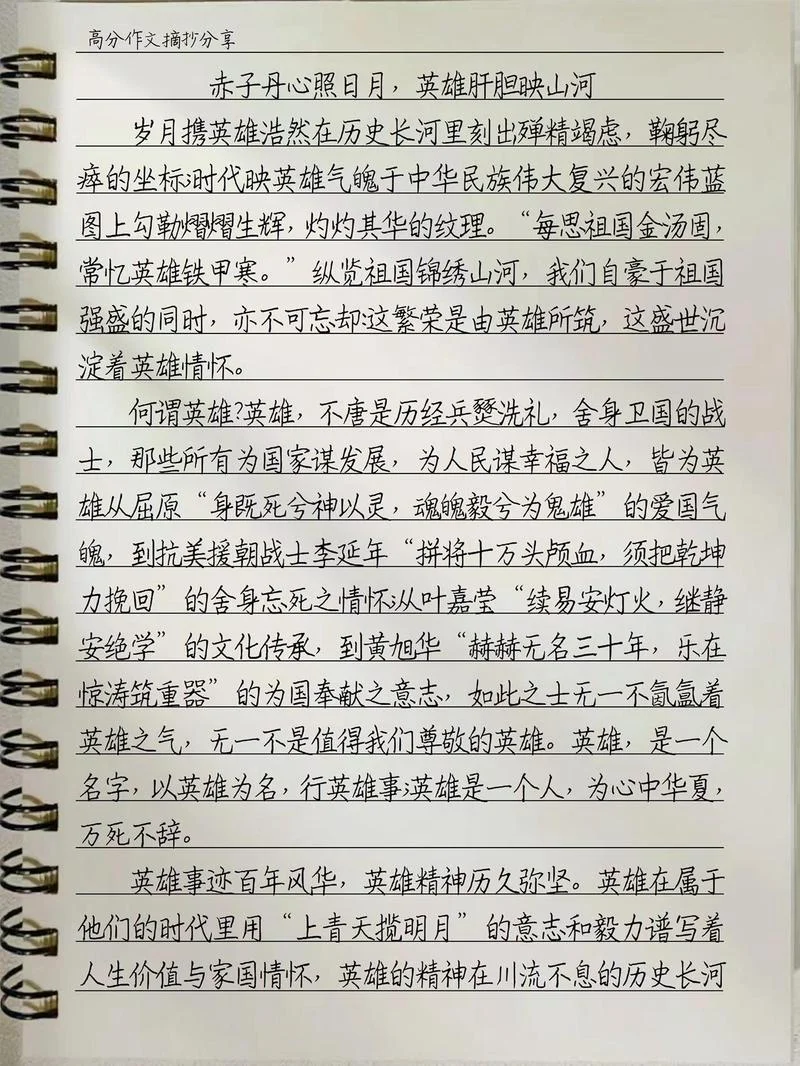 高分作文摘抄分享
赤子丹心照日月，英雄肝胆映山河
岁月携英雄浩然在历史长河里刻出殚精竭虑，鞠躬尽
瘁的坐标;时代映英雄气魄于中华民族伟大复兴的宏伟蓝
图上勾勒熠熠生辉，灼灼其华的纹理。“每思祖国金汤固，
常忆英雄铁甲寒。”纵览祖国锦绣山河，我们自豪于祖国
强盛的同时，亦不可忘却:这繁荣是由英雄所筑，这盛世沉
淀着英雄情怀。
何谓英雄?英雄，不唐是历经兵燹洗礼，舍身卫国的战
士，那些所有为国家谋发展，为人民谋幸福之人，皆为英
雄从屈原“身既死兮神以灵，魂魄毅兮为鬼雄”的爱国气
魄，到抗美援朝战士李延年“拼将十万头颅血，须把乾坤
力挽回”的舍身忘死之情怀;从叶嘉莹“续易安灯火，继静
安绝学”的文化传承，到黄旭华“赫赫无名三十年，乐在
惊涛筑重器”的为国奉献之意志，如此之士无一不氤氲着
英雄之气，无一不是值得我们尊敬的英雄。英雄，是一个
名字，以英雄为名，行英雄事;英雄是一个人，为心中华夏，
万死不辞。
英雄事迹百年风华，英雄精神历久弥坚。英雄在属于
他们的时代里用“上青天揽明月”的意志和毅力谱写着
人生价值与家国情怀，英雄的精神在川流不息的历史长河